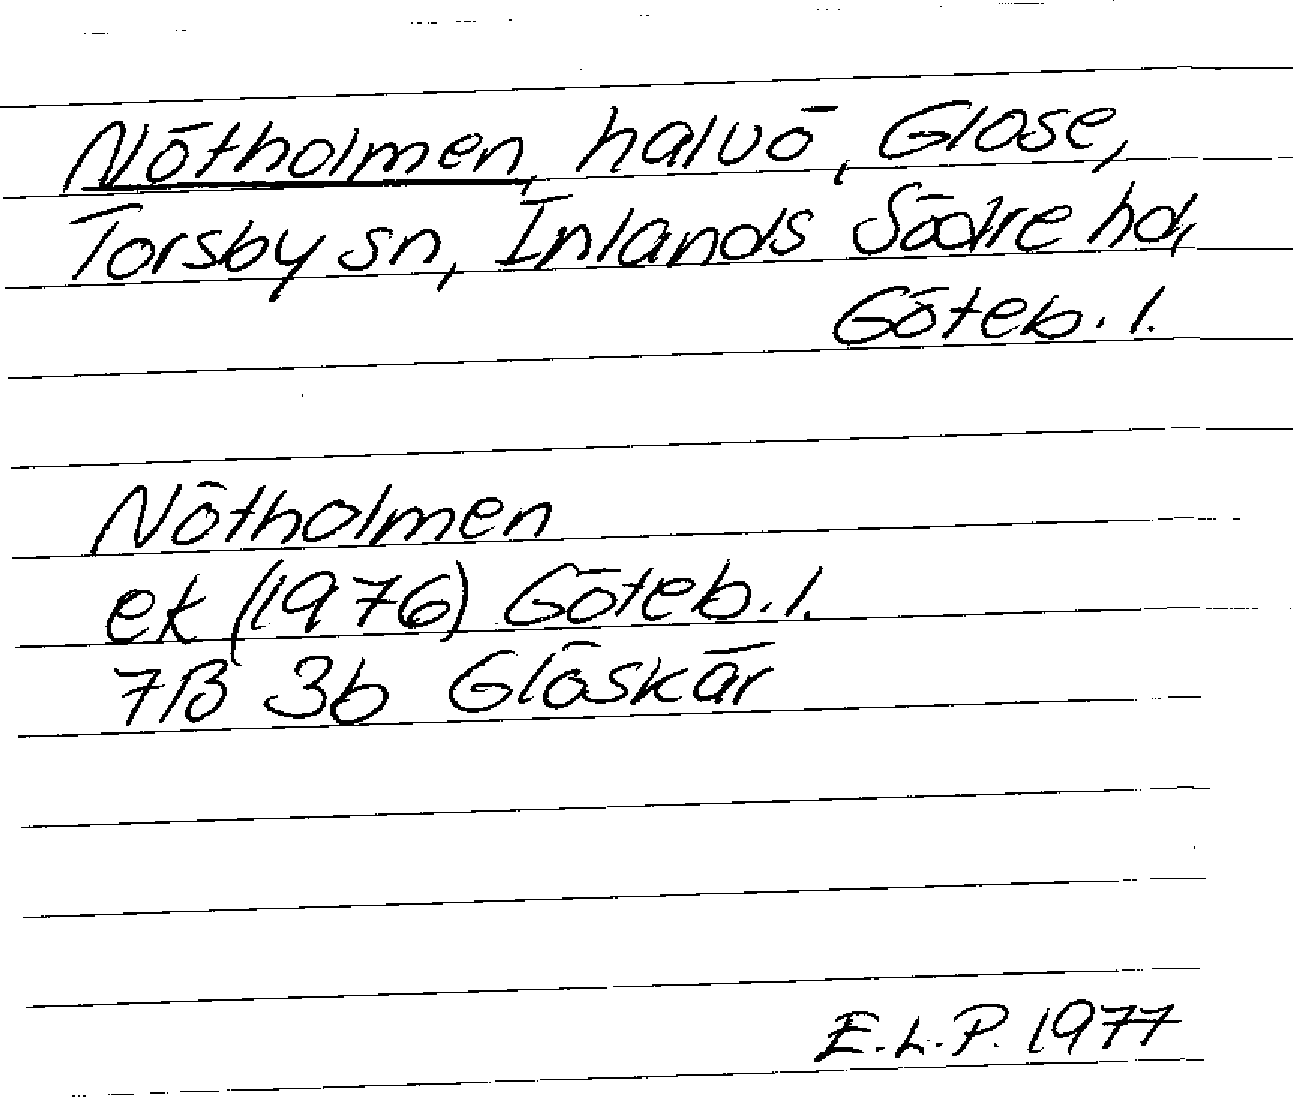 Nötholmen, halvö, Glose,
Torsby sn, Inlands Södre hd,
Göteb. l.
Nötholmen
ek (1976) Göteb. l.
7B 3b Glöskär
E.L.P. 1977